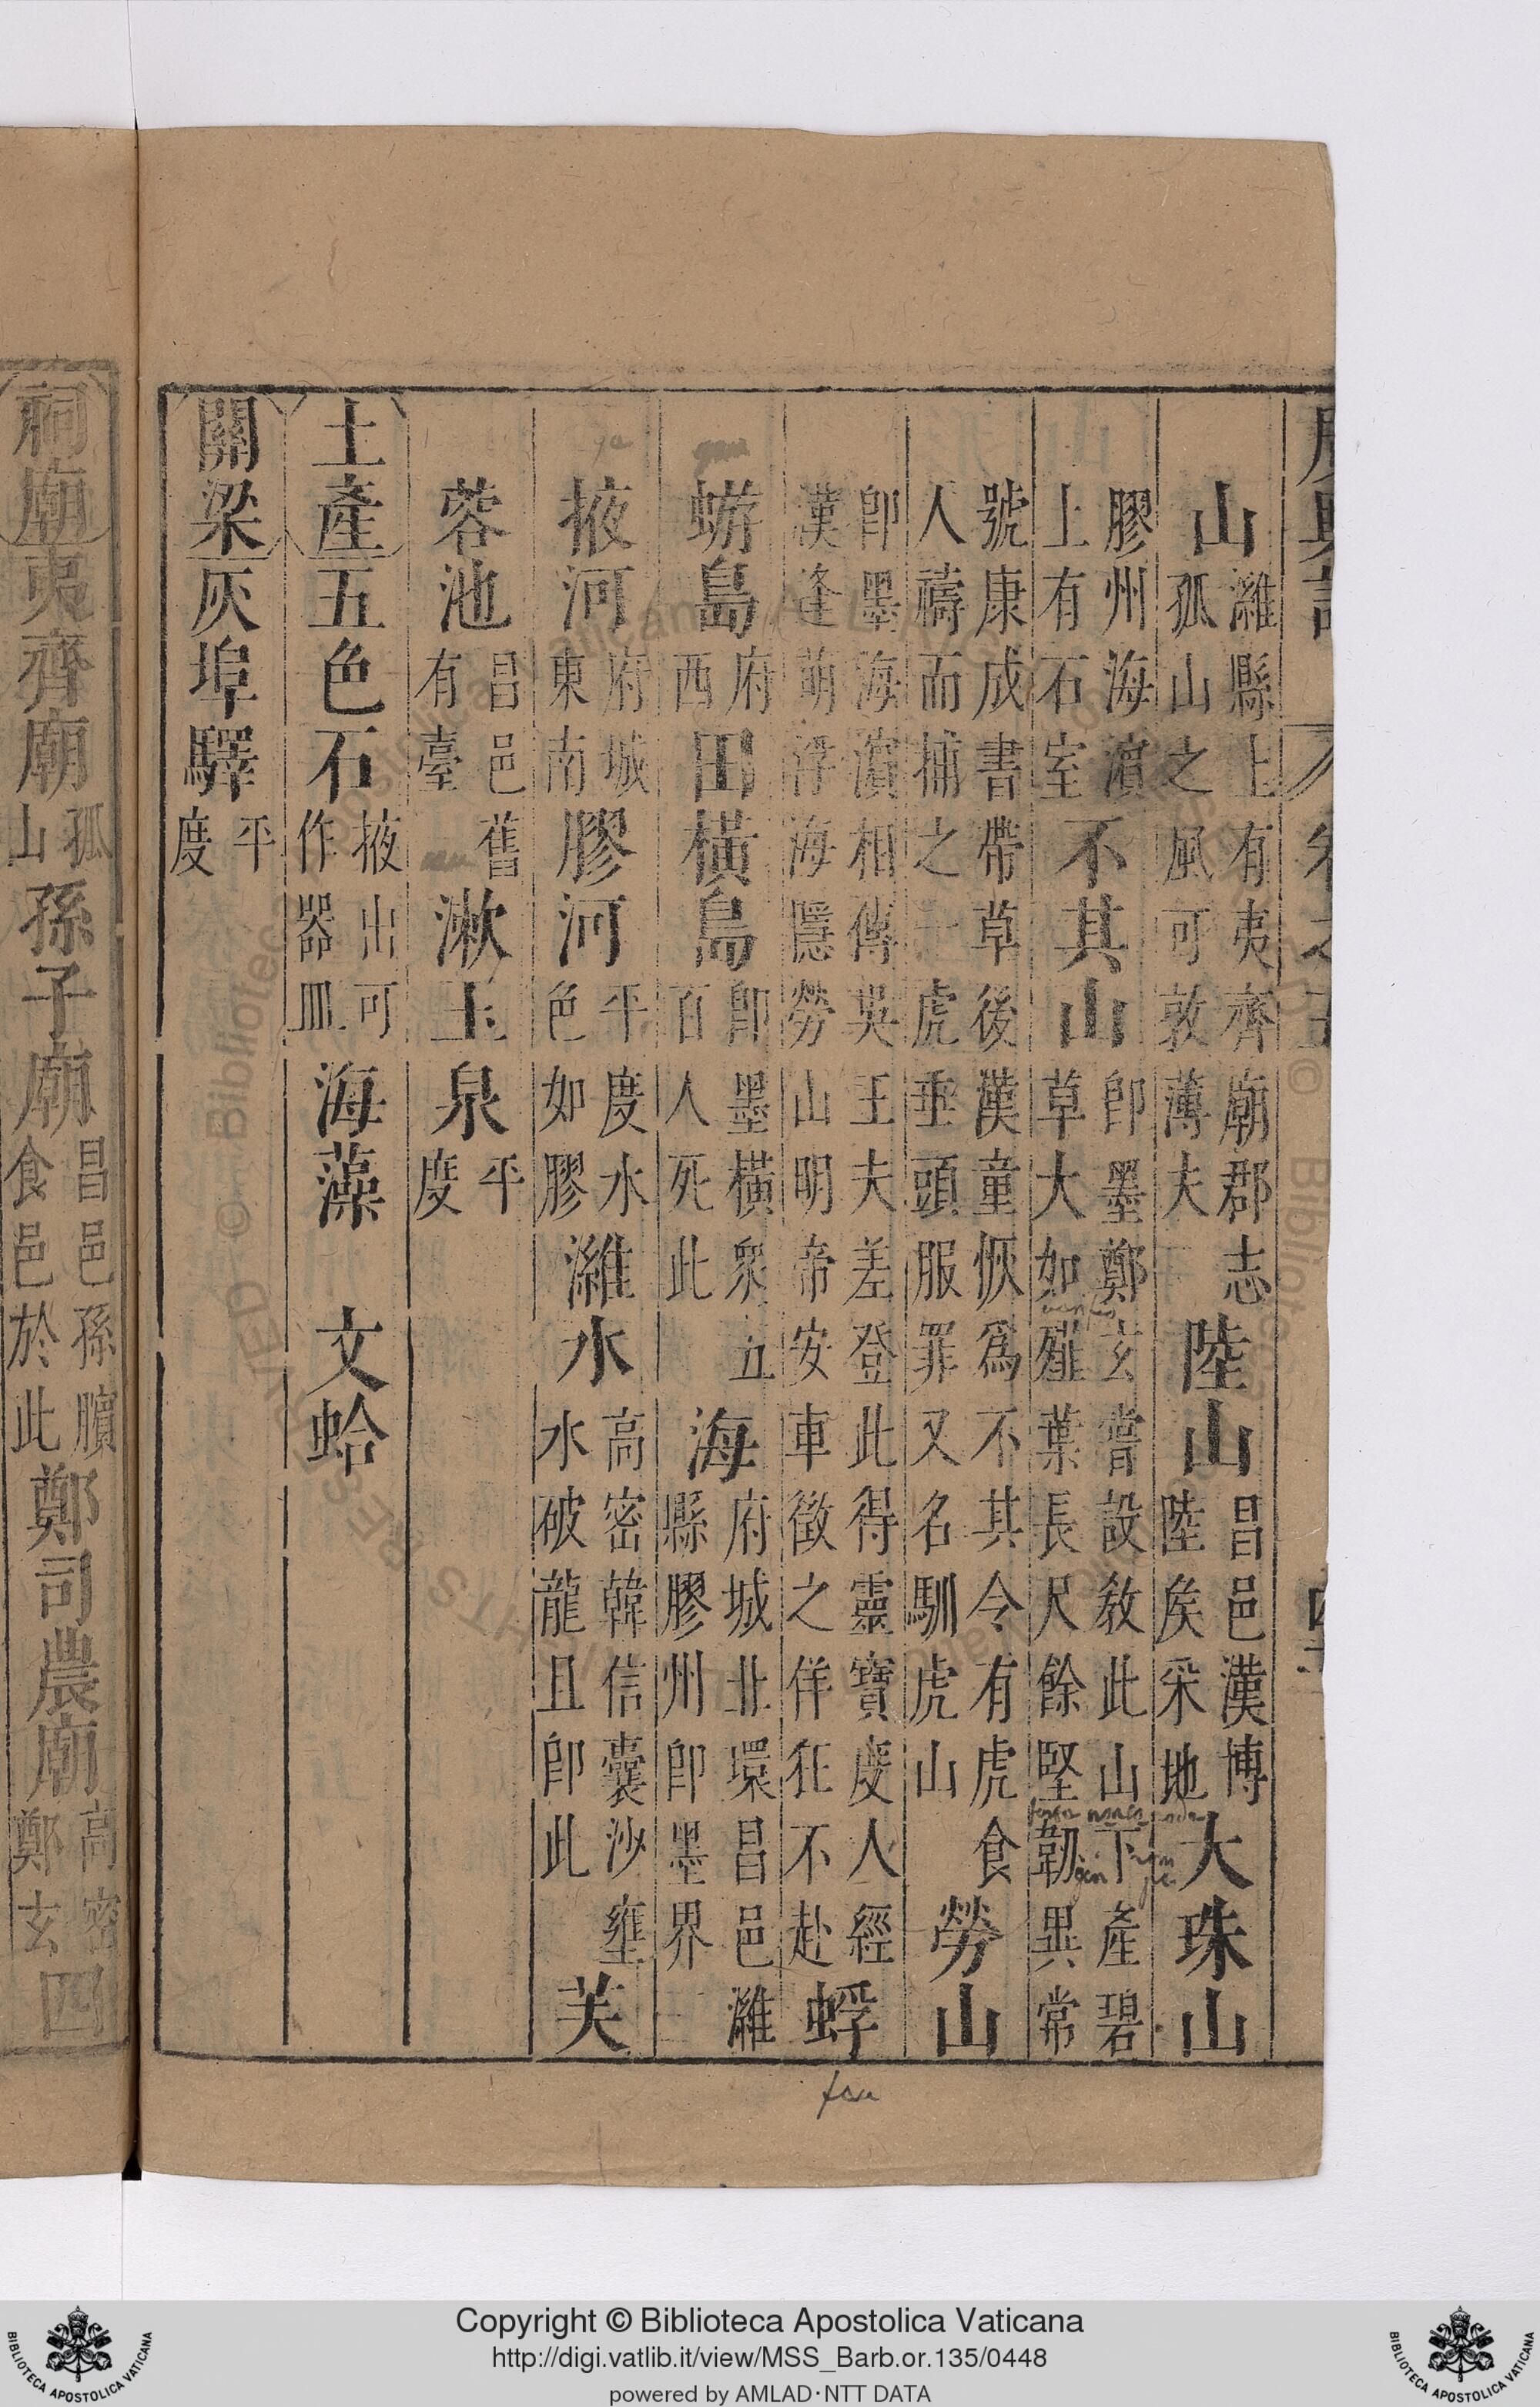 山濰縣上有夷齊廟郡志孤山之風可敦薄夫陸山昌邑漢博陸侯采地大珠山
膠州海濵上有石室不其山即墨鄭玄嘗設敎此山下產碧草大如薤葉長尺餘堅韌異常
號康成書帶草後漢童恢爲不其令有虎食人禱而捕之一虎垂頭服罪又名馴虎山勞山
即墨海濵相傳吳王夫差登此得靈寶度人經漢逢萌浮海隱勞山明帝安車徵之佯狂不赴蜉
蝣島府西田橫島即墨橫衆五百人死此海府城北環昌邑濰縣膠州即墨界
掖河府城東南膠河平度水色如膠濰水高密韓信囊沙壅水破龍且即此芙
蓉池昌邑舊有臺漱玉泉平度
土產五色石掖出可作器皿海藻 文蛤
關梁灰埠驛平度
祠廟夷齊廟孤山孫子廟昌邑孫臏食邑於此鄭司農廟高密鄭玄四
Copyright © Biblioteca Apostolica Vaticana
http://digi.vatlib.it/view/MSS_Barb.or.135/0448
powered by AMLAD·NTT DATA
BIBLIOTECA APOSTOLICA VATICANA
BIBLIOTECA APOSTOLICA VATICANA